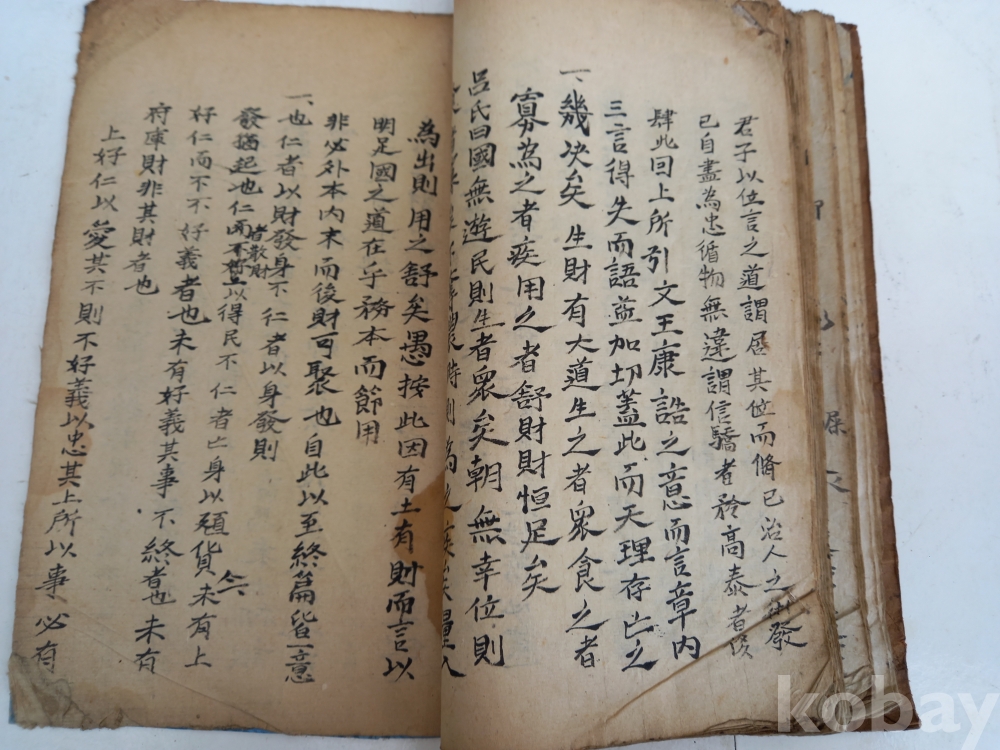 君子以位言之道謂居其位而脩已治人之術發
已自盡為忠循物無違謂信驕者矜高泰者侈
肆此回上所引文王康誥之意而言章内
三言得失而語益加切蓋此而天理存亡之
一、幾决矣 生財有大道生之者眾食之者
寡為之者疾用之者舒財財恒足矣
呂氏曰國無遊民則生者眾矣朝無幸位則
時則為之疾矣量入
為出則用之舒矣愚按此因有土有財而言以
明足國之道在乎務本而節用
非必外本内末而後財可聚也自此以至終篇皆一意
一、也仁者以財發身不仁者以身發則
者散財
發猶起也仁而不好以得民不仁者亡身以殖貨未有上
好仁而不不好義者也未有好義其事不終者也未有
府庫財非其財者也
上好仁以愛其不則不好義以忠其上所以事必有
kobay